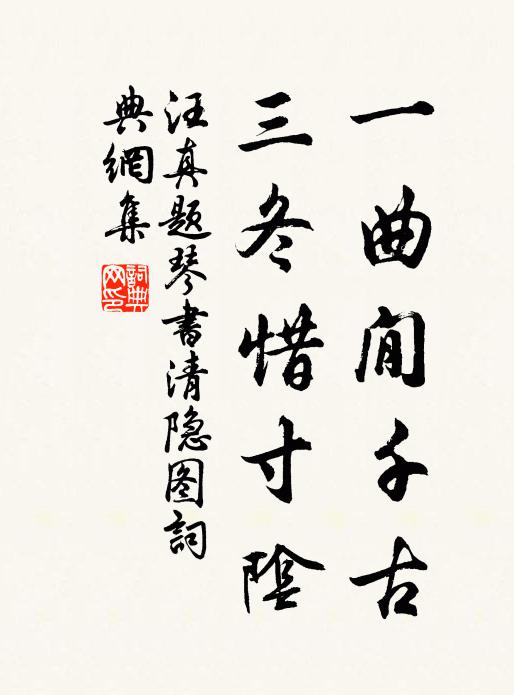 一曲闻千古
三冬惜寸陰
汪真题琴書清隐图詞
典網集
詞典
网印